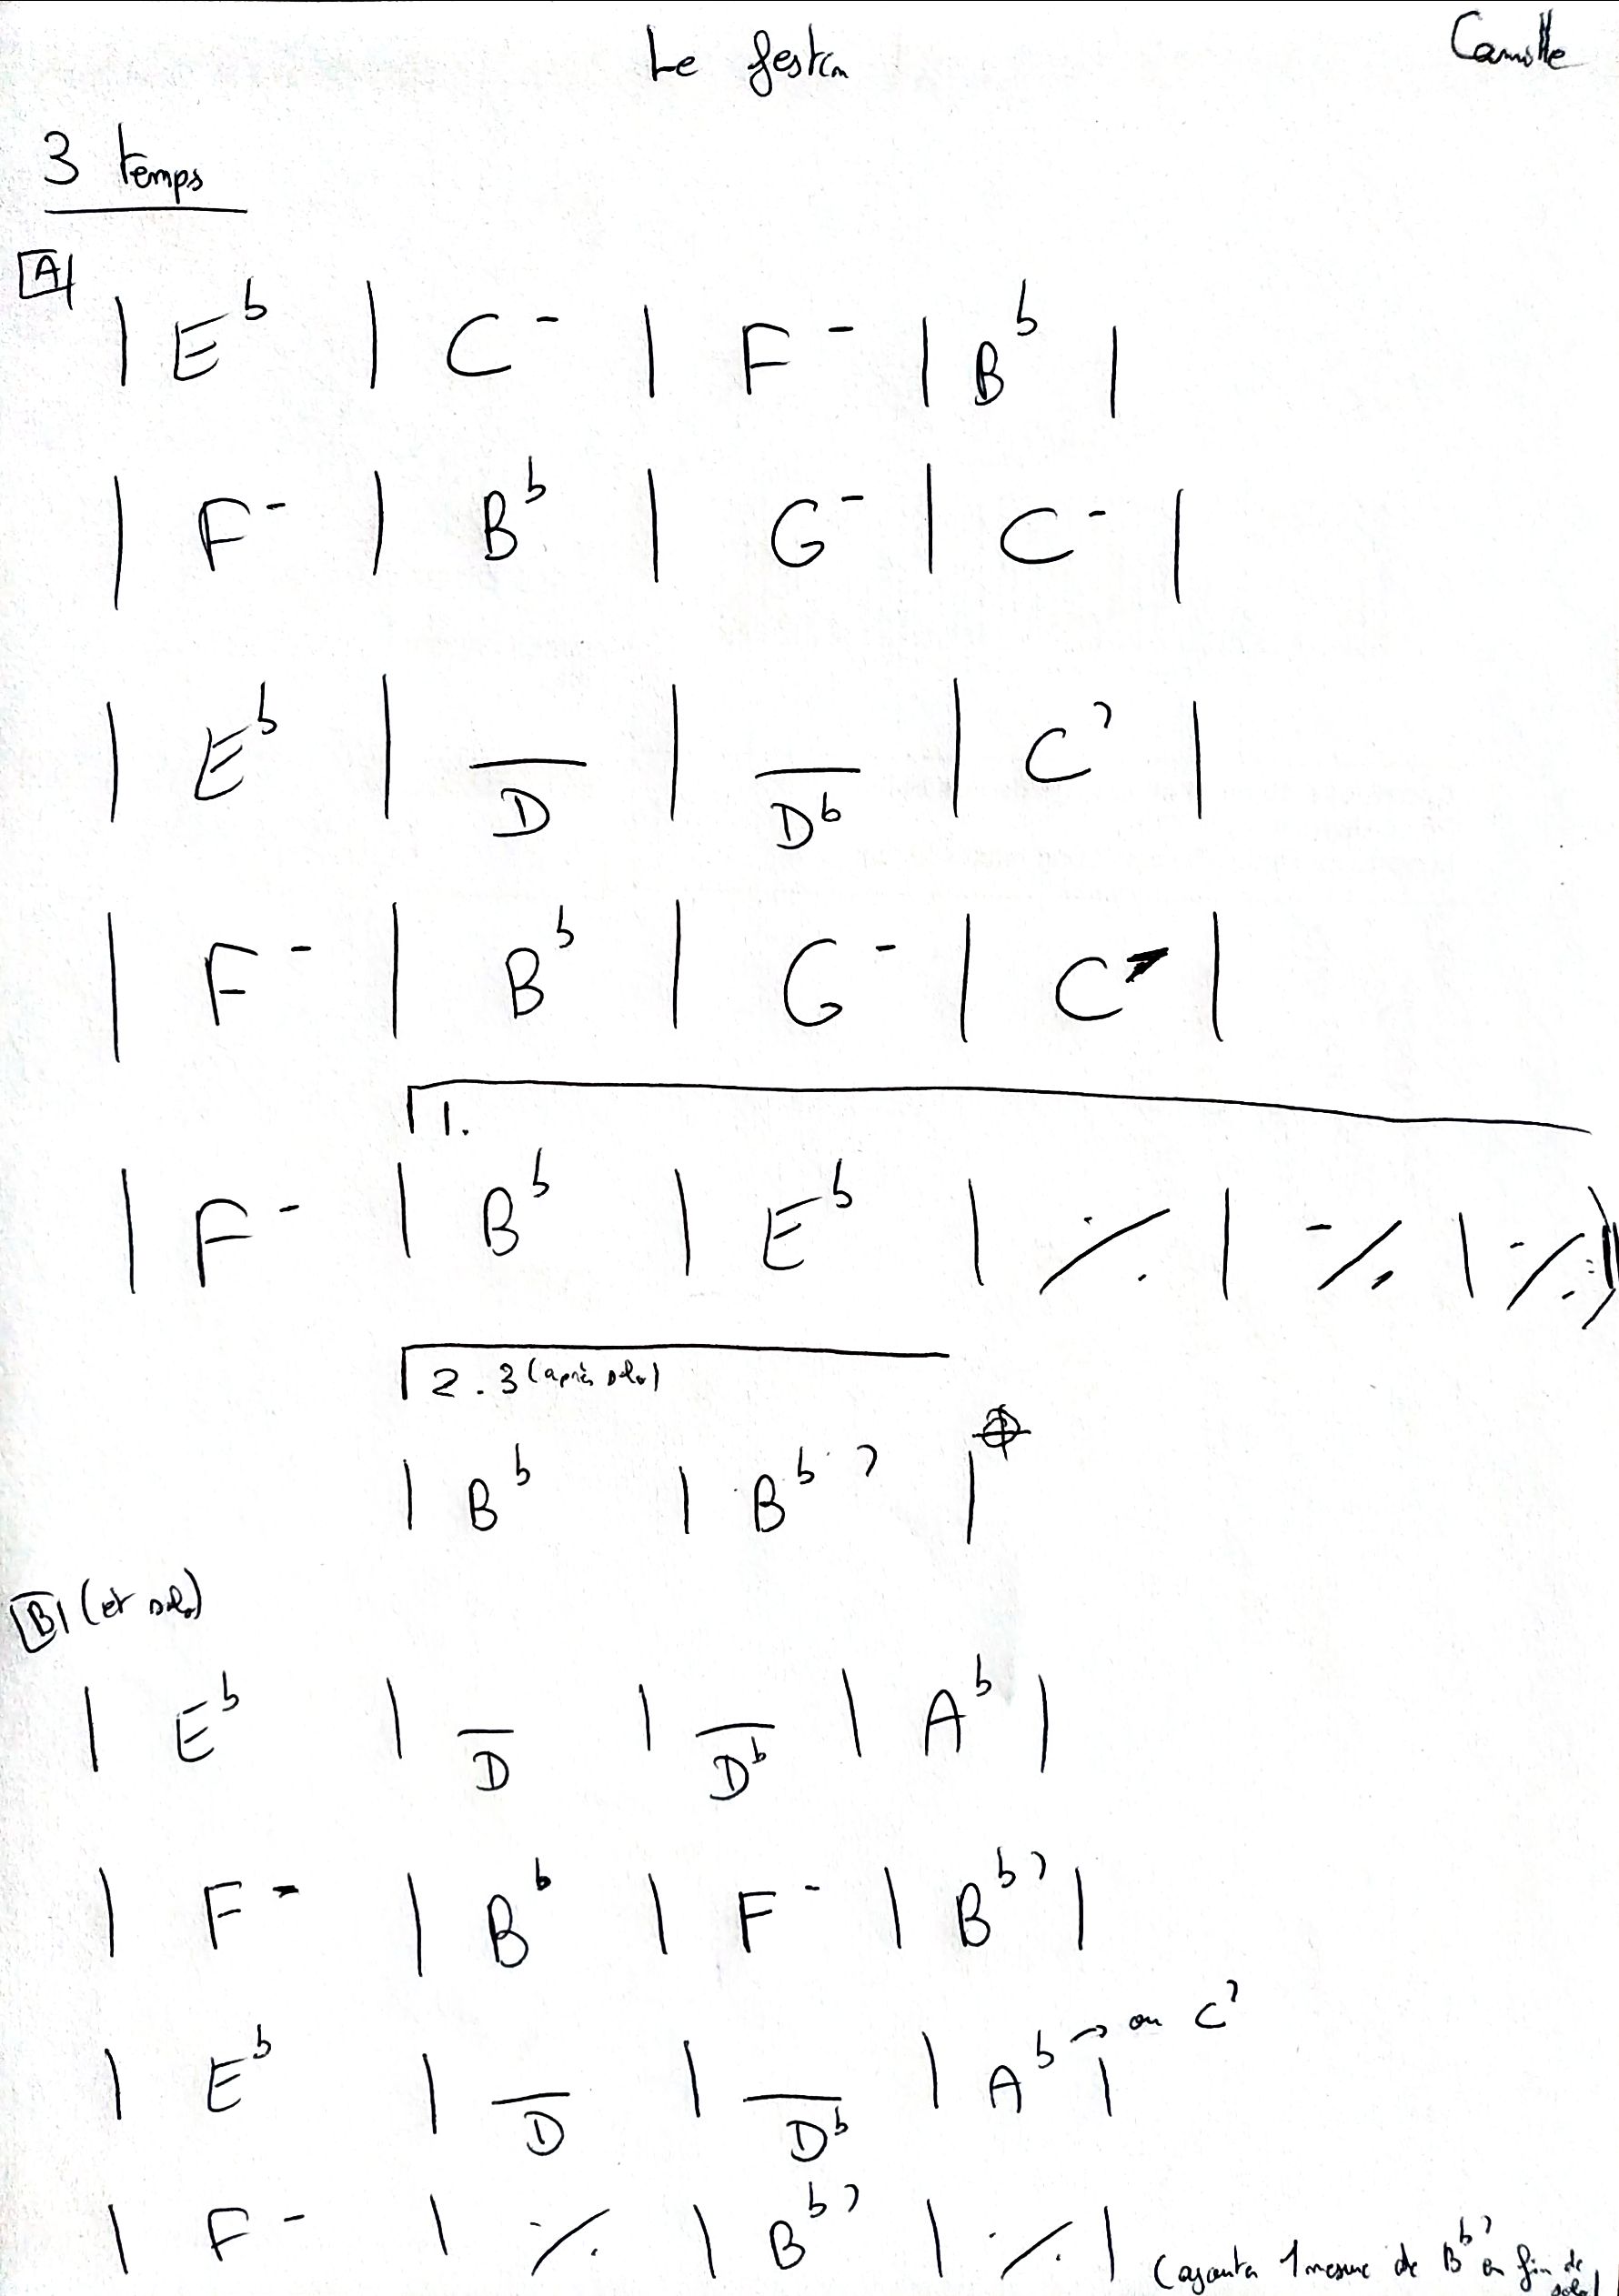 Le festin
Camille
3 temps
A
| E♭ | C - | F - | B♭ |
| F - | B♭ | G - | C - |
| E♭ | —/D | —/D♭ | C7 |
| F - | B♭ | G - | C - |
1.
| F - | B♭ | E♭ | ٪ | ٪ | ٪ :||
2. 3 (après solo)
| B♭ | B♭7 |
B (et solo)
| E♭ | —/D | —/D♭ | A♭ |
| F - | B♭ | F - | B♭7 |
| E♭ | —/D | —/D♭ | A♭ | → ou C7
| F - | ٪ | B♭7 | ٪ | (ajouter 1 mesure de B♭7 en fin de
solo)